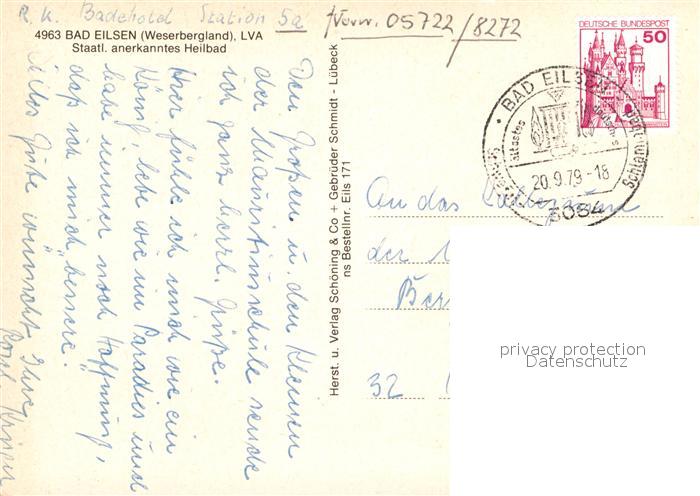 R. K. Badehotel Station 5a
Vorw. 05722/8272
4963 BAD EILSEN (Weserbergland), LVA
Staatl. anerkanntes Heilbad
Den Großen u. den Kleinen
der Mauritiusschule sende
ich ganz herzl. Grüße.
Hier fühle ich mich wie ein
König, lebe wie im Paradies und
habe immer noch Hoffnung,
daß ich mich "bessere".
Alles Gute wünscht Ihre
Herst. u. Verlag Schöning & Co + Gebrüder Schmidt - Lübeck
ns Bestellnr. Eils 171
DEUTSCHE BUNDESPOST
50
BAD EILSEN
ältestes
Schlamm
20.9.79-18
An das
der
32
privacy protection
Datenschutz